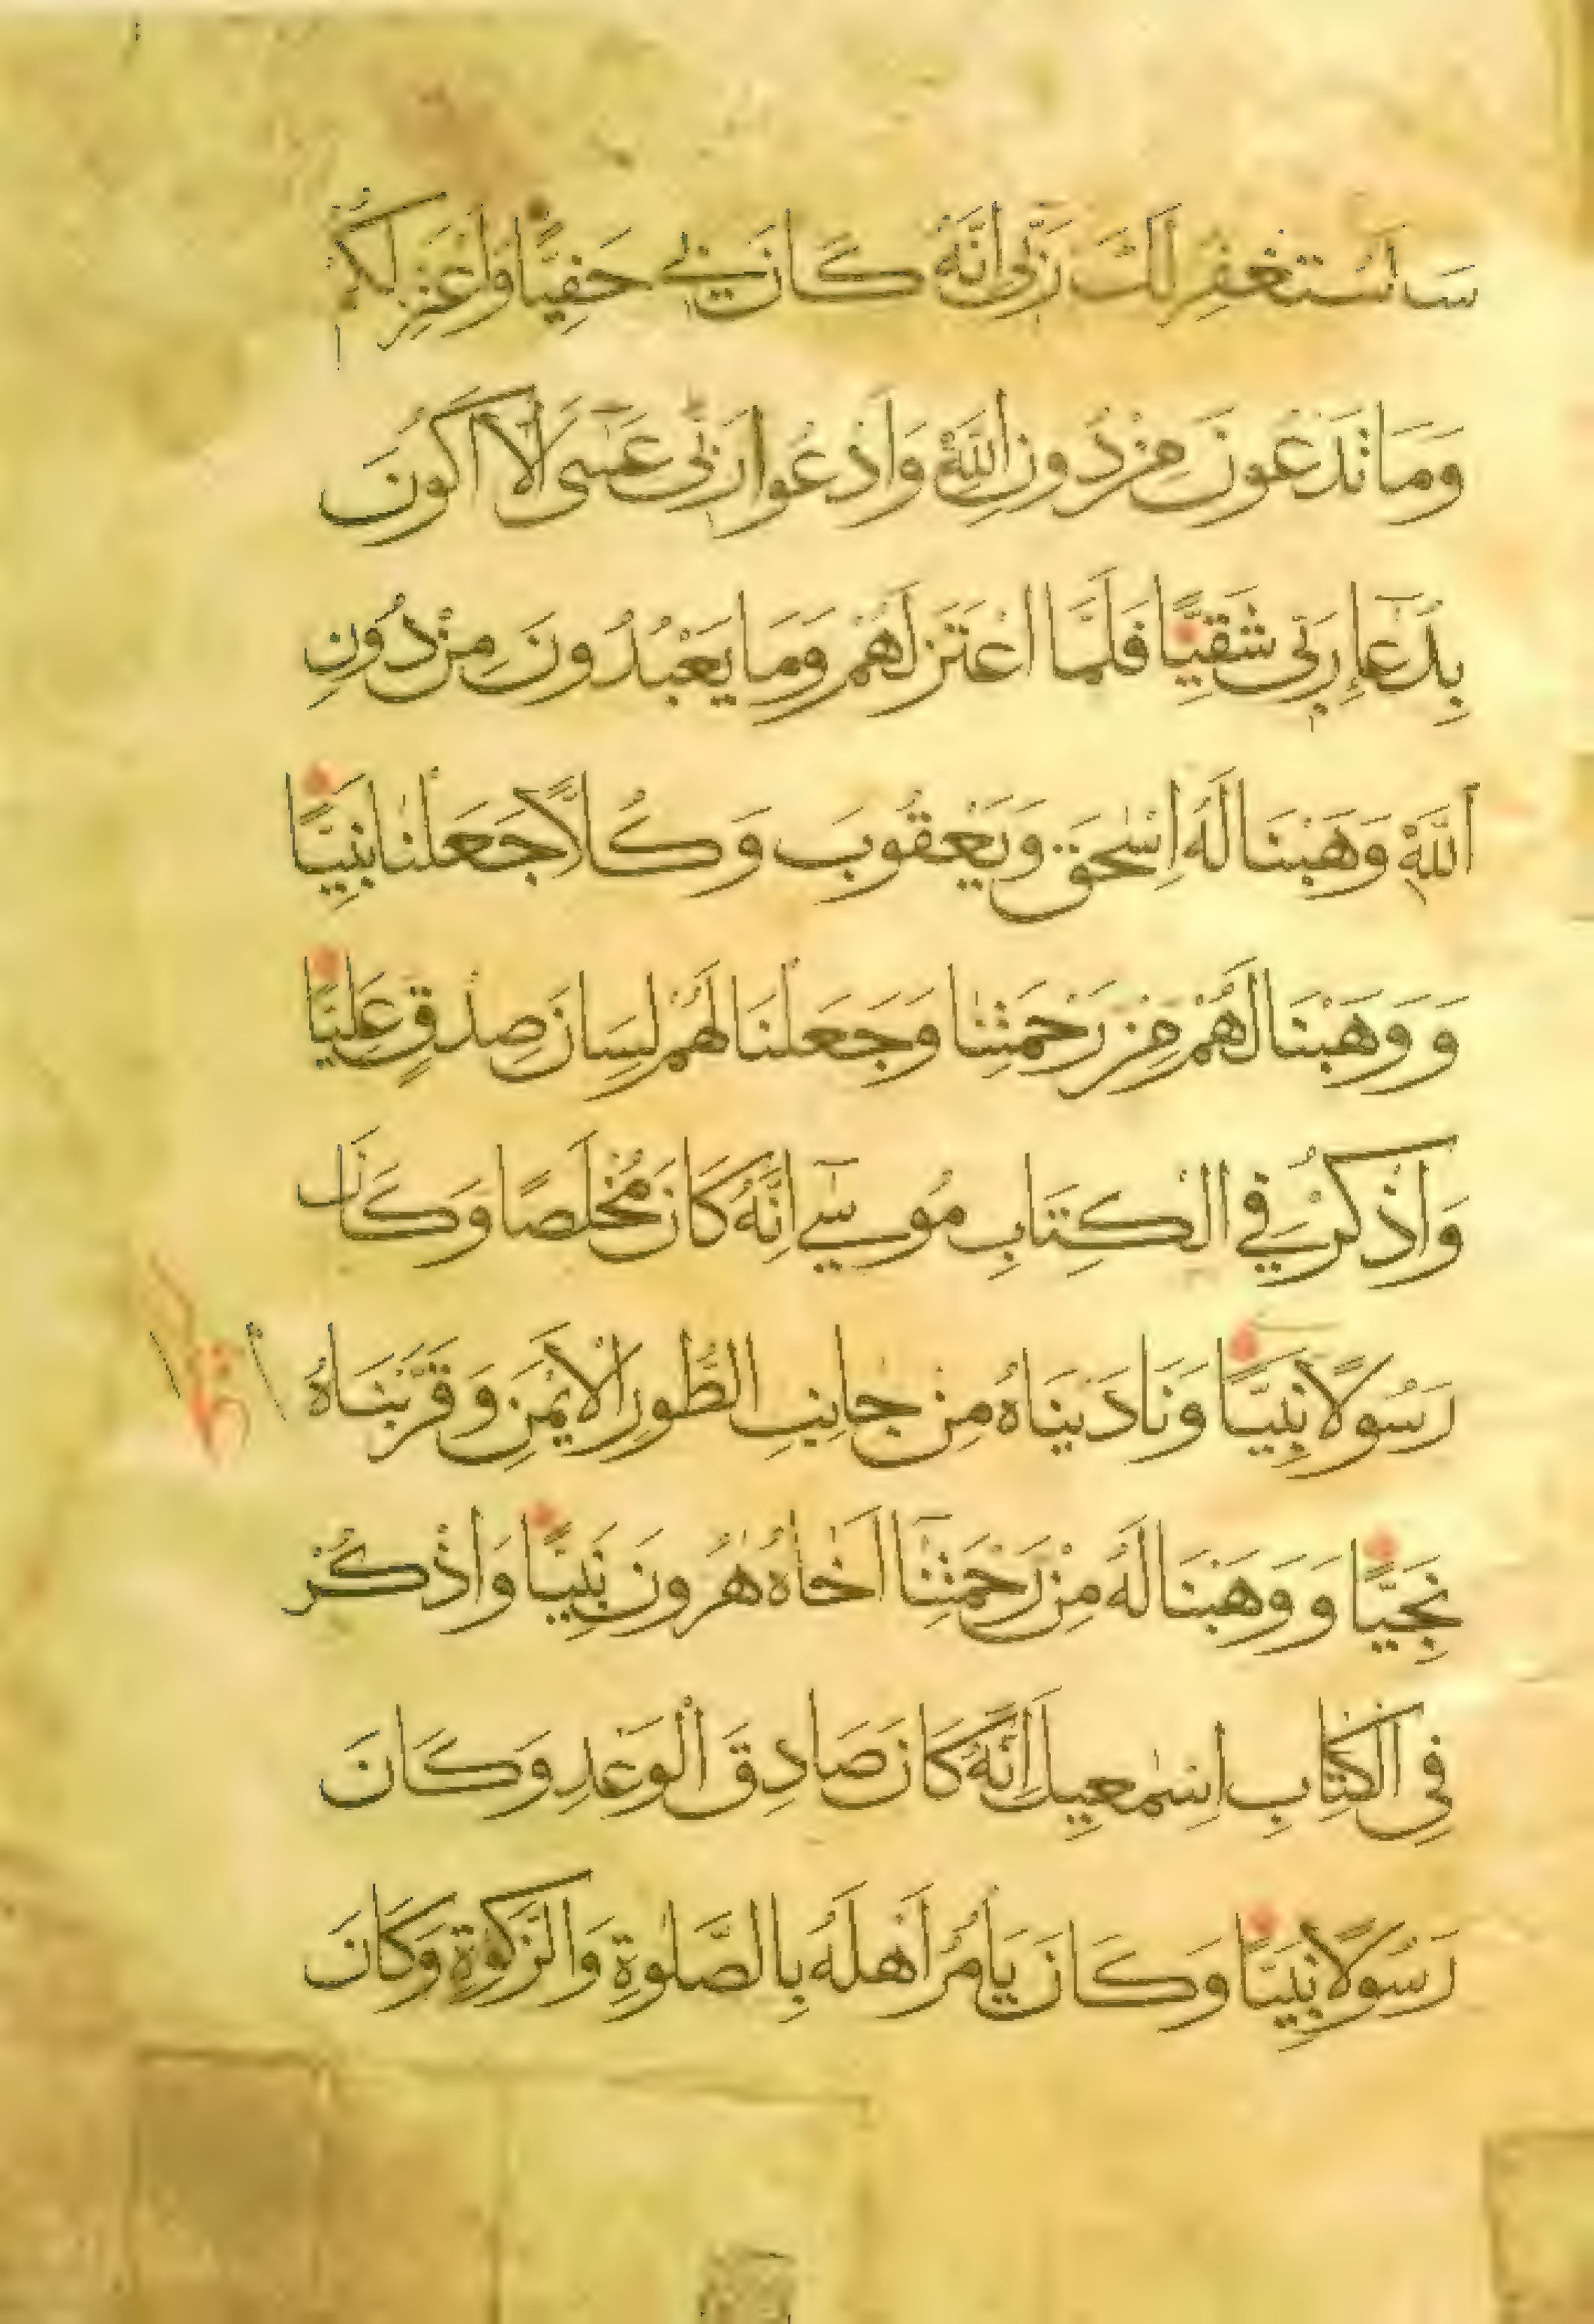 سَاَسْتَغْفِرُ لَكَ رَبِّى اِنَّهُ كَانَ بِى حَفِيًّا وَاَعْتَزِلُكُمْ
وَمَا تَدْعُونَ مِنْ دُونِ اللّٰهِ وَاَدْعُوا رَبِّى عَسٰٓى اَلَّا اَكُونَ
بِدُعَآءِ رَبِّى شَقِيًّا فَلَمَّا اعْتَزَلَهُمْ وَمَا يَعْبُدُونَ مِنْ دُونِ
اللّٰهِ وَهَبْنَا لَهُ اِسْحٰقَ وَيَعْقُوبَ وَكُلًّا جَعَلْنَا نَبِيًّا
وَ وَهَبْنَا لَهُمْ مِنْ رَحْمَتِنَا وَجَعَلْنَا لَهُمْ لِسَانَ صِدْقٍ عَلِيًّا
وَاذْكُرْ فِى الْكِتَابِ مُوسٰٓى اِنَّهُ كَانَ مُخْلَصًا وَكَانَ
رَسُولًا نَبِيًّا وَنَادَيْنَاهُ مِنْ جَانِبِ الطُّورِ الْاَيْمَنِ وَقَرَّبْنَاهُ
نَجِيًّا وَ وَهَبْنَا لَهُ مِنْ رَحْمَتِنَآ اَخَاهُ هٰرُونَ نَبِيًّا وَاذْكُرْ
فِى الْكِتَابِ اِسْمٰعِيلَ اِنَّهُ كَانَ صَادِقَ الْوَعْدِ وَكَانَ
رَسُولًا نَبِيًّا وَكَانَ يَأْمُرُ اَهْلَهُ بِالصَّلٰوةِ وَالزَّكٰوةِ وَكَانَ